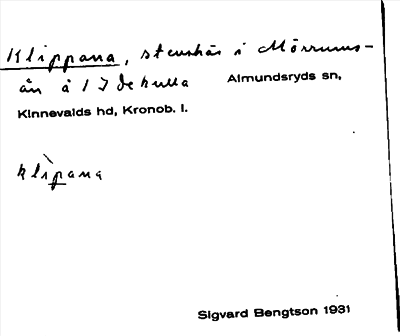 Klippana, stenskär i Mörrums-
ån å 17 Dekulla Almundsryds sn,
Kinnevalds hd, Kronob. l.
klìpana
Sigvard Bengtson 1931